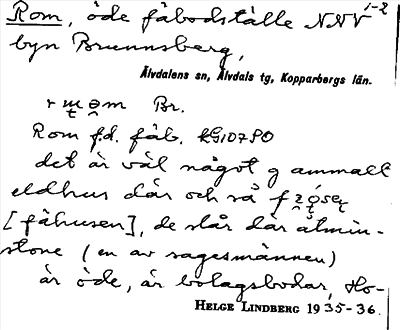 Rom, öde fäbodställe NNV 1-2
byn Brunnsberg,
Älvdalens sn, Älvdals tg, Kopparbergs län.
Br.
Rom f.d. fäb. KG10790
det är väl något gammalt
eldhus där och så
[fähusen], de står där åtmin-
stone (en av sagesmännen)
är öde, är bolagsbodar, Ho-
HELGE LINDBERG 1935-36.